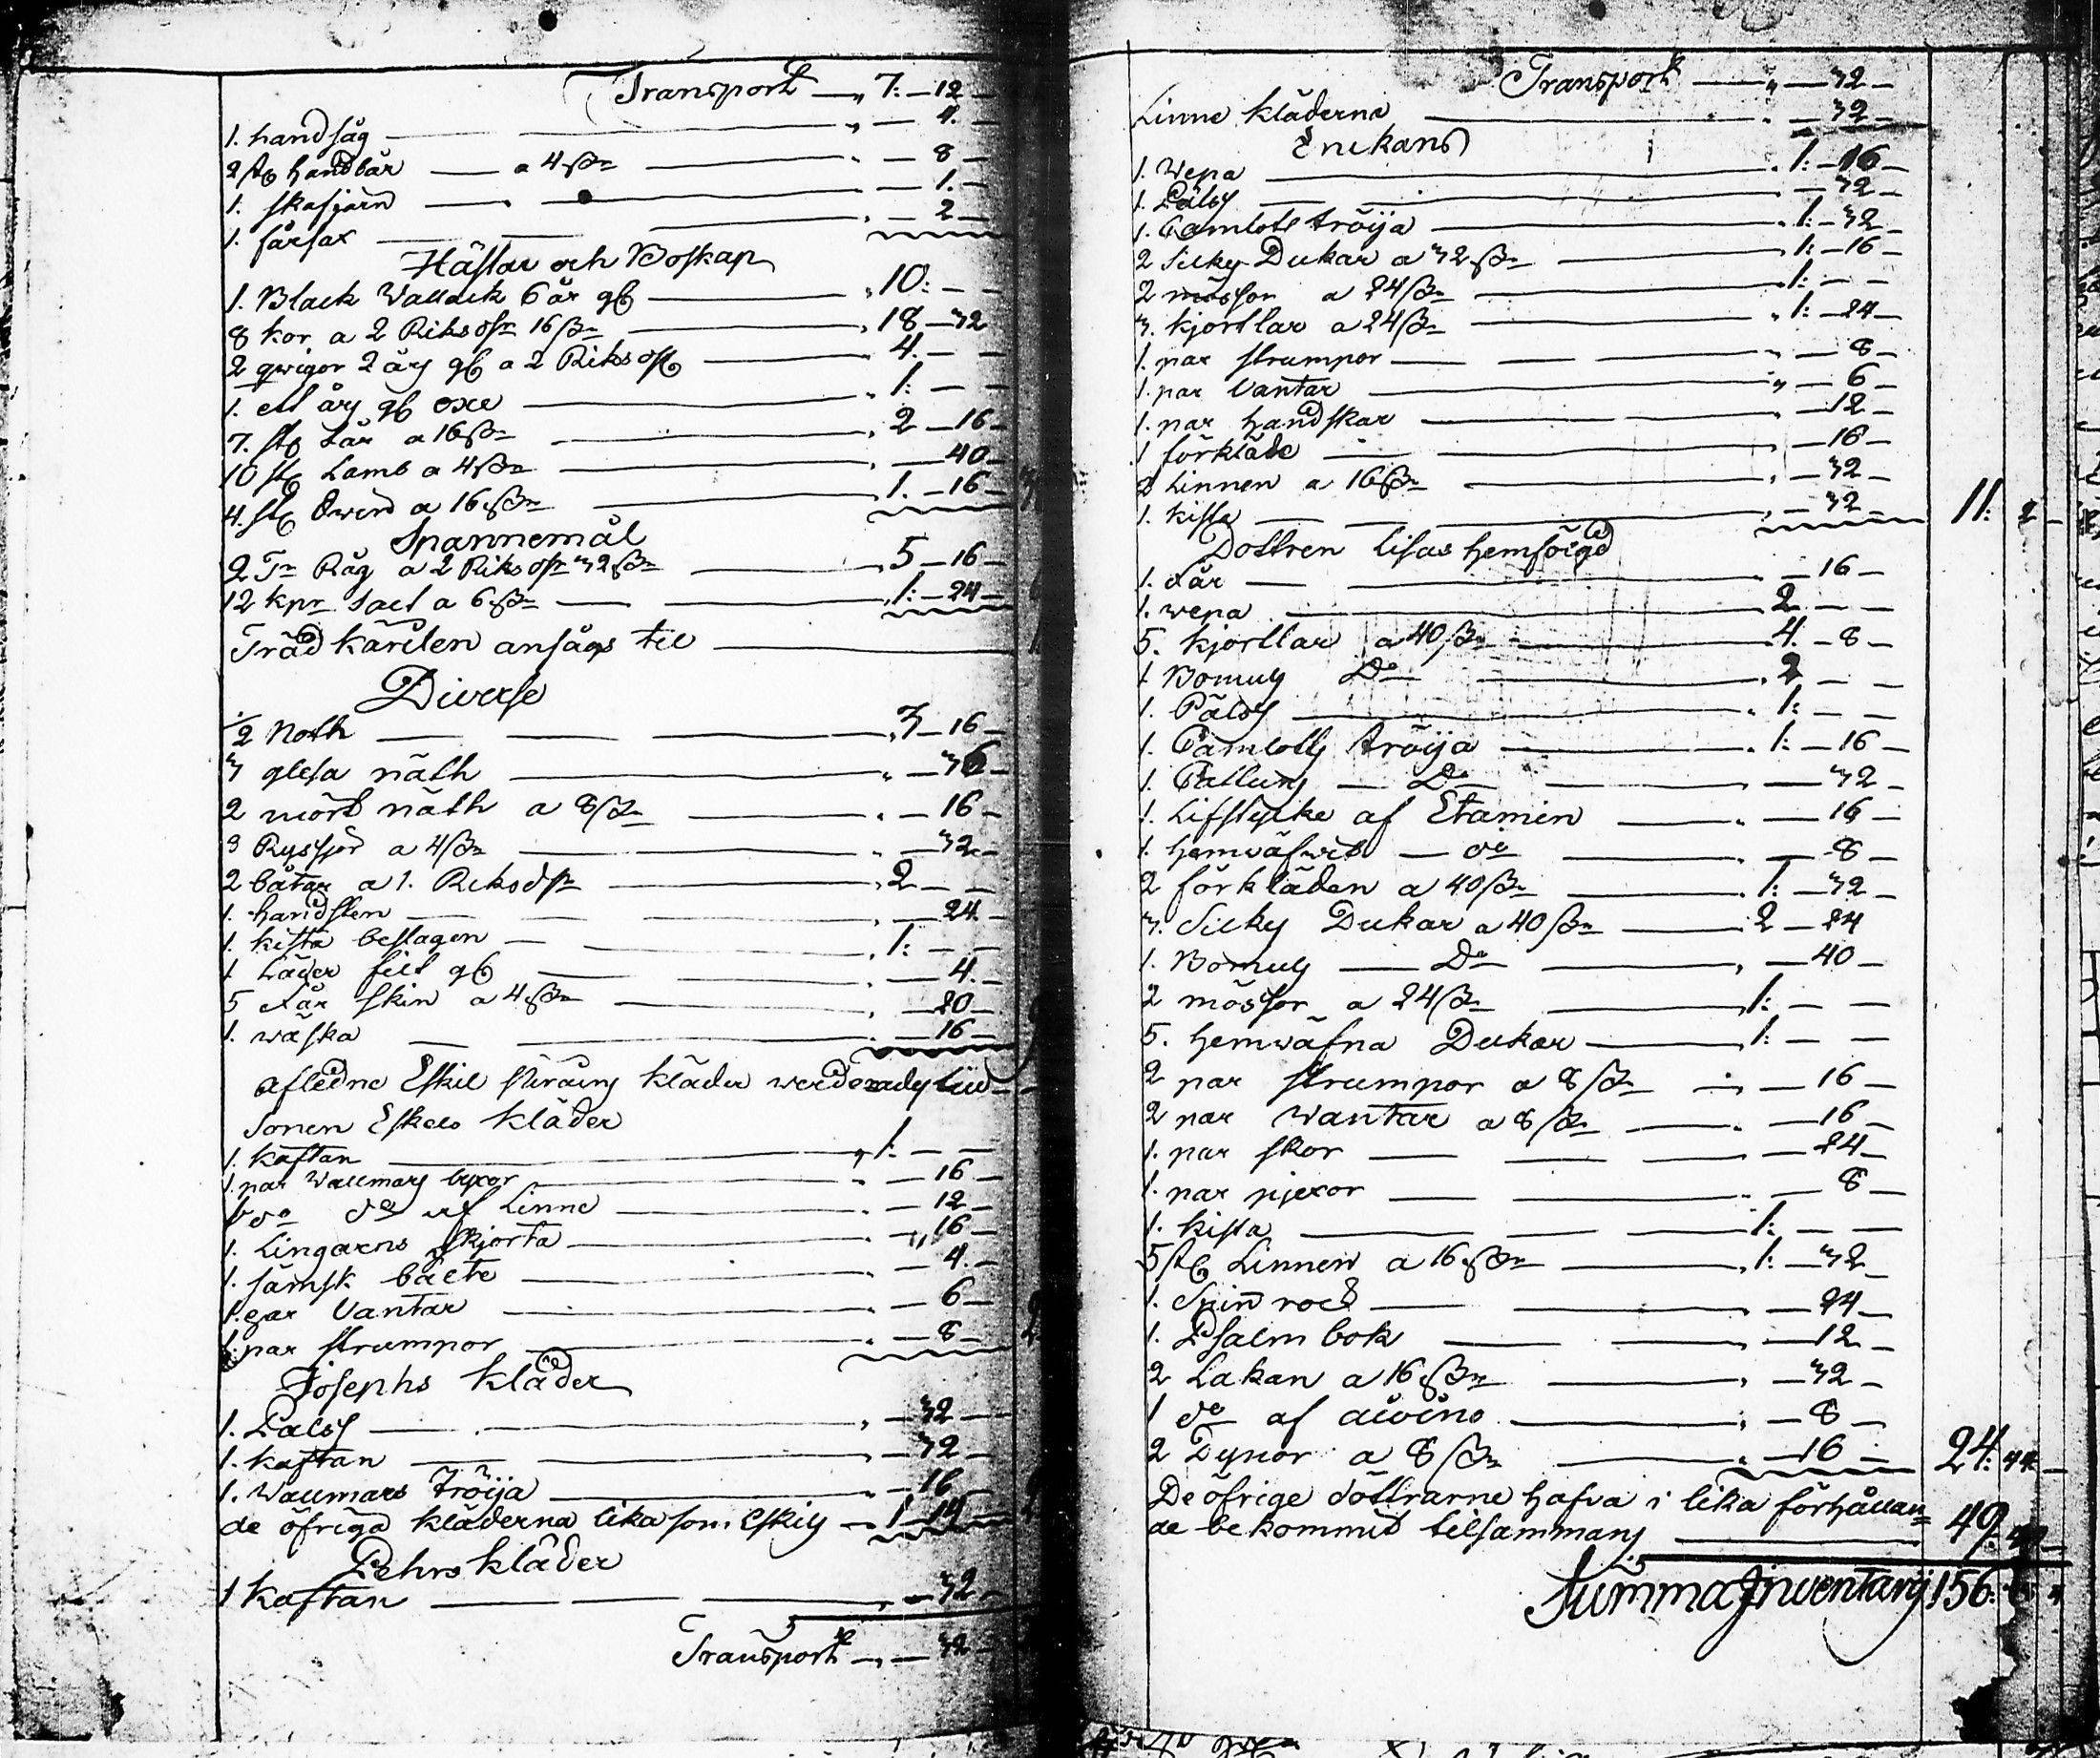 Transport — „ 7: — 12 —
1. handsåg — „ — 4. —
2 st. handbår — a 4 ß — „ — 8 —
1. skafjärn — „ — 1. —
1. fårsax — „ — 2 —
Hästar och Boskap
1. Black Wallack 6 år gl — „ 10: — —
8 kor a 2 Riksdr 16 ß — „ 18 — 32
2 qwigor 2 års gl a 2 Riksdr — „ 4. — —
1. ett års gl oxe — „ 1: — —
7. st får a 16 ß — „ 2 — 16 —
10 st Lamb a 4 ß — „ — 40 —
4. st Swin a 16 ß — „ 1. — 16 —
Spannemål
2 Tr Råg a 2 Riksdr 32 ß — „ 5 — 16 —
12 kpr salt a 6 ß — „ 1: — 24 —
Träd kärilen ansågs til —
Diverse
1/2 Noth — „ 3 — 16 —
3 glesa näth — „ — 36 —
2 mört näth a 8 ß — „ — 16 —
8 Ryssjor a 4 ß — „ — 32 —
2 båtar a 1. Riksdr — „ 2 — —
1. handsten — „ — 24 —
1. kista beslagen — „ 1: — —
1 Läder fäll gl — „ — 4. —
5 får skin a 4 ß — „ — 20 —
1. wäska — „ — 16 —
afledne Eskil kläder
Sonen Eskels kläder
1. kaftan — „ 1: — —
1. par Wallmars byxor — „ — 16 —
1 do do af Linne — „ — 12 —
1. Lingarns skjorta — „ — 16 —
1. sämsk bälte — „ — 4. —
1. par Vantar — „ — 6 —
1. par strumpor — „ — 8 —
Josephs kläder
1. Päls — „ — 32 —
1. kaftan — „ — 32 —
1. Wallmars Tröija — „ — 16 —
de öfriga kläderna lika som Eskils — 1 — 14 —
Pehrs kläder
1 kaftan — „ — 32 —
Transport — „ — 32 —
Transport — „ — 32 —
Linne kläderna — „ — 32 —
Enkans
1. Wepa — „ 1: — 16 —
1. Päls — „ — 32 —
1. Camlots tröija — „ 1: — 32 —
2 Silkes Dukar a 32 ß — „ 1: — 16 —
2 mössor a 24 ß — „ 1: — —
3. kjortlar a 24 ß — „ 1: — 24 —
1. par strumpor — „ — 8 —
1. par Vantar — „ — 6 —
1. par handskar — „ — 12 —
1 förkläde — „ — 16 —
2 Linnen a 16 ß — „ — 32 —
1. kista — „ — 32 — 11: 2 —
Dottren Lisas hemföigd
1. får — „ — 16 —
1. wepa — „ 2 — —
5. kjortlar a 40 ß — „ 4. — 8 —
1 Bomuls Do — „ 2 — —
1. Päls — „ 1: — —
1. Camlotts tröija — „ 1: — 16 —
1. Do — „ — 32 —
1. Lifstycke af Etamin — „ — 16 —
1. hemwäfwit — do — „ — 8 —
2 förkläden a 40 ß — „ 1: — 32 —
3. Silkes Dukar a 40 ß — 2 — 24
1. Bomuls — Do — „ — 40 —
2 mössor a 24 ß — „ 1: — —
5. hemwäfna Dukar — „ 1: — —
2 par strumpor a 8 ß — „ — 16 —
2 par Wantar a 8 ß — „ — 16 —
1. par skor — „ — 24 —
1. par pjexor — „ — 8 —
1. kista — „ 1: — —
5 st Linnen a 16 ß — „ 1: — 32 —
1. Spin rock — „ — 24 —
1. Psalm bok — „ — 12 —
2 Lakan a 16 ß — „ — 32 —
1 do af — „ — 8 —
2 Dynor a 8 ß — „ — 16 — 24: 44 —
De öfrige döttrarne hafva i lika förhållan=
de bekommit tilsammans — 49
Summa Inventarij 156: